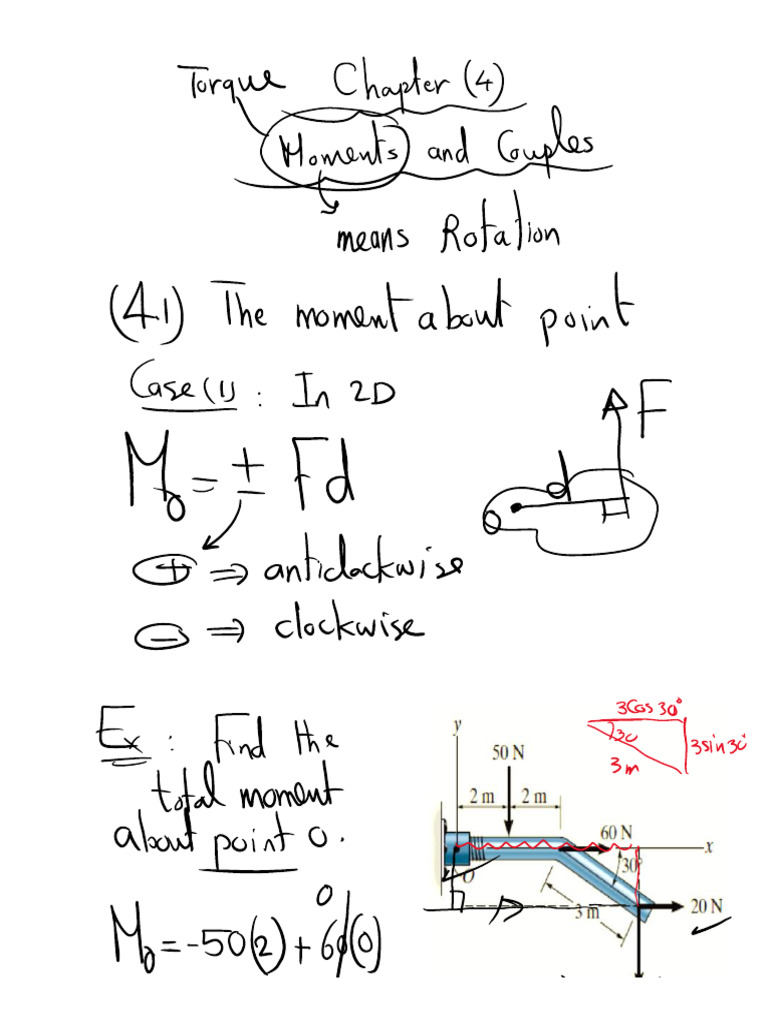 Torque Chapter (4)
Moments and Couples
means Rotation
(4.1) The moment about point
Case (1) : In 2D
F
d
M₀ = ± Fd
o
⊕ ⇒ anticlockwise
⊖ ⇒ clockwise
3Cos 30°
30
3 sin 30
3m
Ex : Find the
total moment
about point O.
y
50 N
2 m 2 m
60 N
x
O
30°
3 m
20 N
0
M₀ = -50(2) + 60(0)